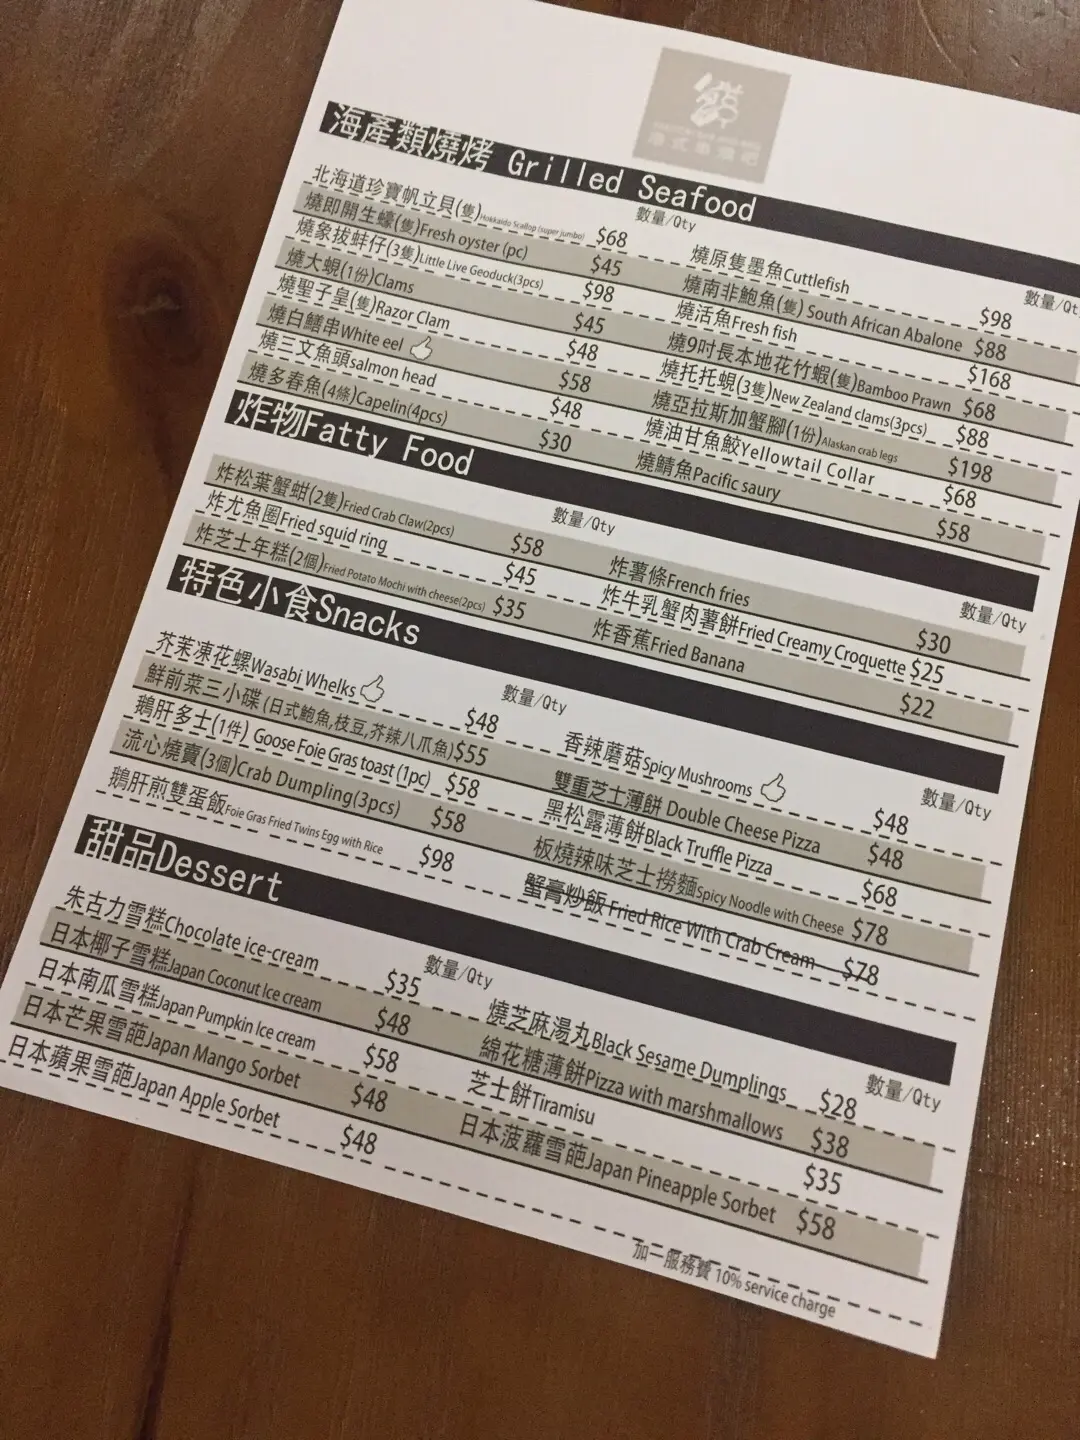 海產類燒烤 Grilled Seafood
數量/Qty
數量/Qty
北海道珍寶帆立貝(隻)Hokkaido Scallop (super jumbo) $68
燒即開生蠔(隻)Fresh oyster (pc) $45
燒象拔蚌仔(3隻)Little Live Geoduck(3pcs) $98
燒大蜆(1份)Clams $45
燒聖子皇(隻)Razor Clam $48
燒白鱔串White eel $58
燒三文魚頭salmon head $48
燒多春魚(4條)Capelin(4pcs) $30
燒原隻墨魚Cuttlefish $98
燒南非鮑魚(隻) South African Abalone $88
燒活魚Fresh fish $168
燒9吋長本地花竹蝦(隻)Bamboo Prawn $68
燒托托蜆(3隻)New Zealand clams(3pcs) $88
燒亞拉斯加蟹腳(1份)Alaskan crab legs $198
燒油甘魚鮫Yellowtail Collar $68
燒鯖魚Pacific saury $58
炸物Fatty Food
數量/Qty
數量/Qty
炸松葉蟹蚶(2隻)Fried Crab Claw(2pcs) $58
炸尤魚圈Fried squid ring $45
炸芝士年糕(2個)Fried Potato Mochi with cheese(2pcs) $35
炸薯條French fries $30
炸牛乳蟹肉薯餅Fried Creamy Croquette $25
炸香蕉Fried Banana $22
特色小食Snacks
數量/Qty
數量/Qty
芥茉凍花螺Wasabi Whelks $48
鮮前菜三小碟 (日式鮑魚,枝豆,芥辣八爪魚)$55
鵝肝多士(1件) Goose Foie Gras toast (1pc) $58
流心燒賣(3個)Crab Dumpling(3pcs) $58
鵝肝煎雙蛋飯Foie Gras Fried Twins Egg with Rice $98
香辣蘑菇Spicy Mushrooms $48
雙重芝士薄餅 Double Cheese Pizza $48
黑松露薄餅Black Truffle Pizza $68
板燒辣味芝士撈麵Spicy Noodle with Cheese $78
蟹膏炒飯 Fried Rice With Crab Cream $78
甜品Dessert
數量/Qty
數量/Qty
朱古力雪糕Chocolate ice-cream $35
日本椰子雪糕Japan Coconut Ice cream $48
日本南瓜雪糕Japan Pumpkin Ice cream $58
日本芒果雪葩Japan Mango Sorbet $48
日本蘋果雪葩Japan Apple Sorbet $48
燒芝麻湯丸Black Sesame Dumplings $28
綿花糖薄餅Pizza with marshmallows $38
芝士餅Tiramisu $35
日本菠蘿雪葩Japan Pineapple Sorbet $58
加一服務費 10% service charge